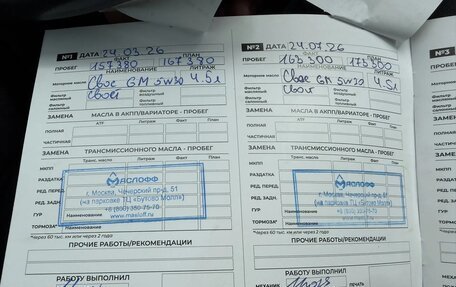 №1 ДАТА 24.03.26
ФАКТ ПЛАН
ПРОБЕГ 157380 167380
НАИМЕНОВАНИЕ ЛИТРАЖ
Моторное масло Своё GM 5w30 4.5л
Фильтр масляный свой Фильтр воздушный
Фильтр салонный Фильтр топливный
ЗАМЕНА МАСЛА В АКПП/ВАРИАТОРЕ - ПРОБЕГ
ATF Литраж Факт План
ПОЛНАЯ
ЧАСТИЧНАЯ
ЗАМЕНА ТРАНСМИССИОННОГО МАСЛА - ПРОБЕГ
Транс. масло Литраж Факт План
МКПП
РАЗДАТКА
РЕД. ПЕРЕД.
РЕД. ЗАДН.
ГУР Наименование
ТОРМОЗА*
МАСЛОФФ
г. Москва, Чечерский пр-д, 51
(на парковке ТЦ «Бутово Молл»)
+8 (800) 350-75-70
www.masloff.ru
*Через 60 тыс. км или через 2 года
ПРОЧИЕ РАБОТЫ/РЕКОМЕНДАЦИИ
РАБОТУ ВЫПОЛНИЛ
№2 ДАТА 24.07.26
ФАКТ ПЛАН
ПРОБЕГ 163300 173300
НАИМЕНОВАНИЕ ЛИТРАЖ
Моторное масло Своё GM 5w30 4.5л
Фильтр масляный свой Фильтр воздушный
Фильтр салонный Фильтр топливный
ЗАМЕНА МАСЛА В АКПП/ВАРИАТОРЕ - ПРОБЕГ
ATF Литраж Факт План
ПОЛНАЯ
ЧАСТИЧНАЯ
ЗАМЕНА ТРАНСМИССИОННОГО МАСЛА - ПРОБЕГ
Транс. масло Литраж Факт План
МКПП
РАЗДАТКА
РЕД. ПЕРЕД.
РЕД. ЗАДН.
ГУР
ТОРМОЗА* Наименование
МАСЛОФФ
г. Москва, Чечерский пр-д, 51
(на парковке ТЦ «Бутово Молл»)
+8 (800) 350-75-70
www.masloff.ru
*Через 60 тыс. км или через 2 года
ПРОЧИЕ РАБОТЫ/РЕКОМЕНДАЦИИ
РАБОТУ ВЫПОЛНИЛ
МЕХАНИК ПЕЧАТЬ
№3
ПРОБЕГ
Моторное масло
Фильтр масляный
Фильтр салонный
ЗАМЕНА
ПОЛНАЯ
ЧАСТИЧНАЯ
ЗАМЕНА
МКПП
РАЗДАТКА
РЕД. ПЕР
РЕД. ЗАД
ГУР
ТОРМОЗА